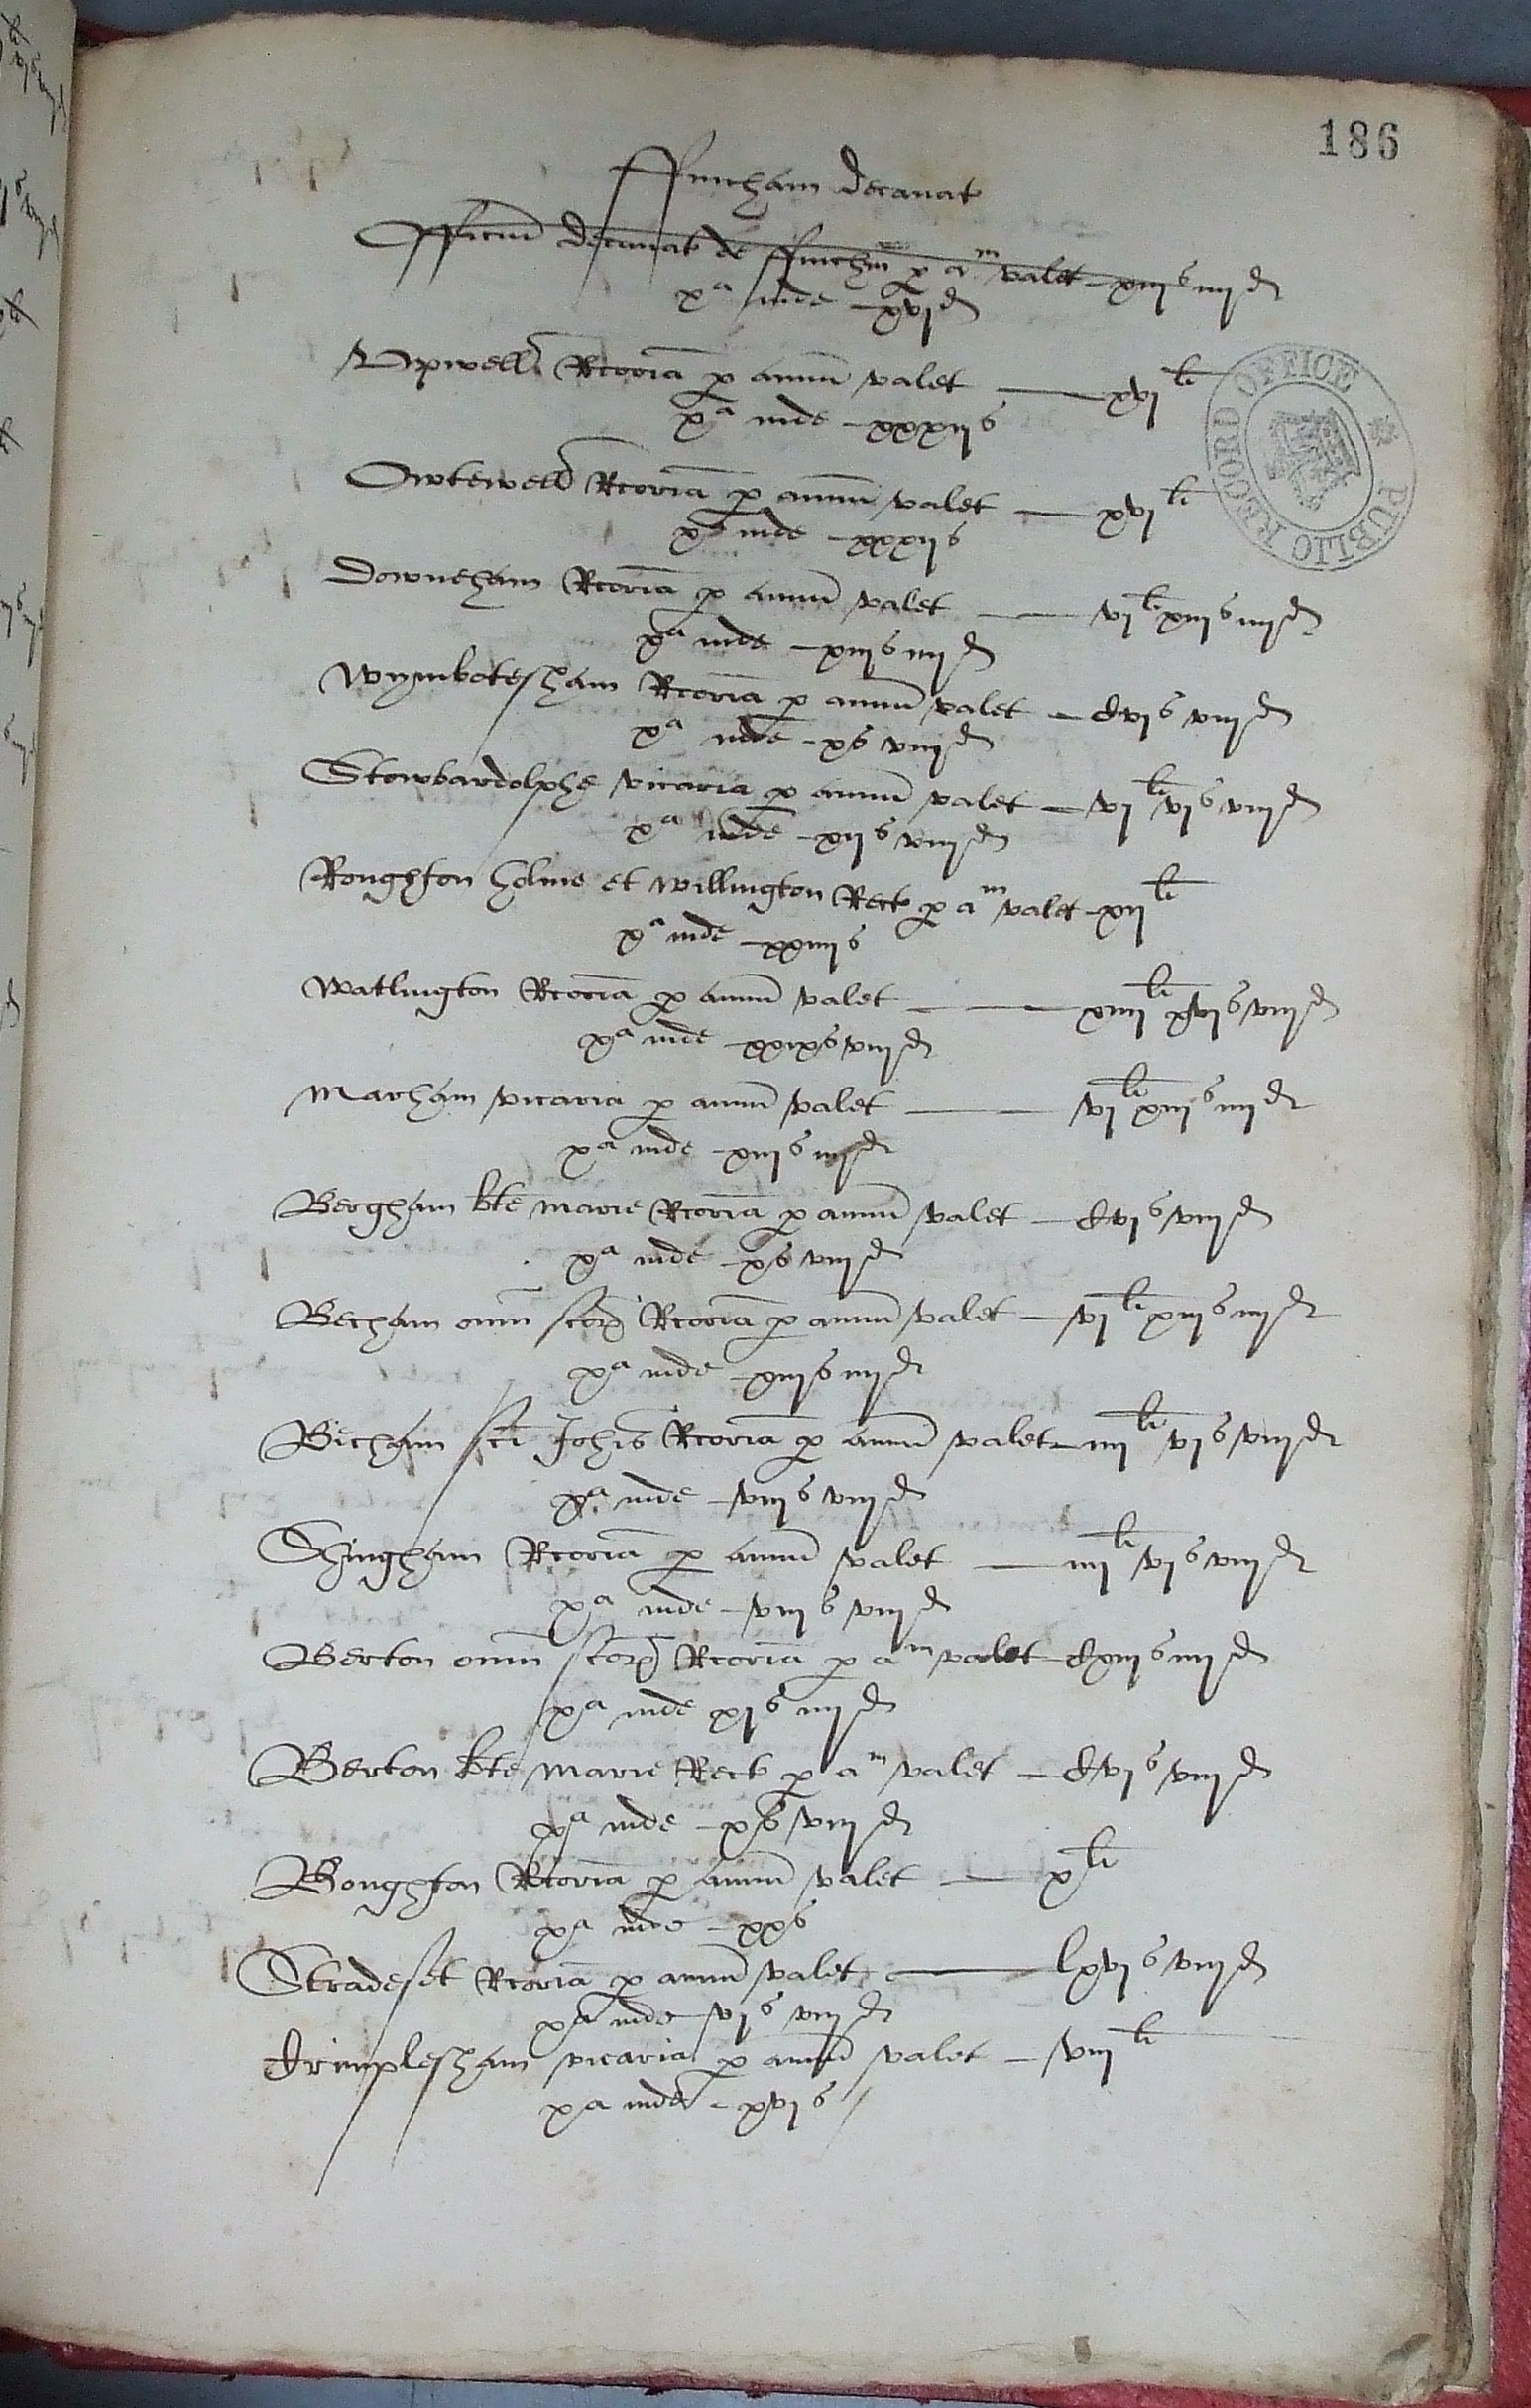 186
ffincham decanat
Officiu decanat de ffincham p am valet – xiijs iiijd
xa inde – xvjd
Upwell Rcoria p annu valet — xvjli
xa inde – xxxijs
PUBLIC RECORD OFFICE
Owtewell Rcoria p annu valet — xvjli
xa inde – xxxijs
Downeham Rcoria p annu valet — vjli xiijs iiijd
xa inde – xiijs iiijd
Wymbotesham Rcoria p annu valet – Cvjs viijd
xa inde – xs viijd
Stowbardolphe vicaria p annu valet – vjli vjs viijd
xa inde – xijs viijd
Ronghton holme et Wallington Rect p am valet – xijli
xa inde – xxiiijs
Watlington Rcoria p annu valet — xiiijli xvjs viijd
xa inde – xxixs viijd
Marham vicaria p annu valet — vjli xiijs iiijd
xa inde – xiijs iiijd
Bergham bte marie Rcoria p annu valet – Cvjs viijd
xa inde – xs viijd
Becham omn scor Rcoria p annu valet – vjli xiijs iiijd
xa inde – xiijs iiijd
Bicham sci Johis Rcoria p annu valet – iiijli vjs viijd
xa inde – viijs viijd
Shingham Rcoria p annu valet — iiijli vjs viijd
xa inde – viijs viijd
Berton omn scor Rcoria p am valet – Cxiijs iiijd
xa inde xjs iiijd
Berton bte marie Rect p am valet – Cvjs viijd
xa inde – xs viijd
Boughton Rcoria p annu valet — xli
xa inde – xxs
Stradeset Rcoria p annu valet — lxvjs viijd
xa inde – vjs viijd
Crimplesham vicaria p annu valet – viijli
xa inde – xvjs